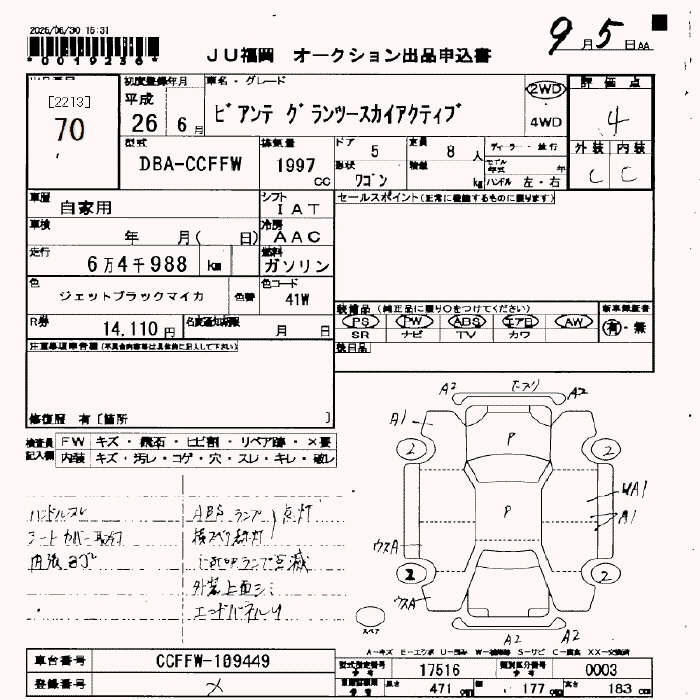 2026/06/30 15:31
*0019236*
JU福岡 オークション出品申込書
9月5日 AA
[2213]
70
初度登録年月
平成
26 6月
車名・グレード
ビアンテ グランツースカイアクティブ
2WD
4WD
評価点
4
型式
DBA-CCFFW
排気量
1997
CC
ドア
5
定員
8人
形状
ワゴン
積量
kg
ディーラー・並行
モデル年式 年
ハンドル 左・右
外装 内装
C C
車歴
自家用
シフト
IAT
セールスポイント(正常に機能するものに限ります)
車検
年 月( 日)
冷房
AAC
走行
6万4千988 km
燃料
ガソリン
色
ジェットブラックマイカ
色替
色コード
41W
装備品 (純正品に限り○をつけてください)
新車保証書
PS PW ABS エアB AW
有・無
SR ナビ TV カワ
R券
14,110円
名変通知期限
月 日
後日品
注意事項申告欄(不具合内容等は具体的に記入して下さい)
修復歴 有〔箇所 〕
検査員
記入欄
FW キズ・飛石・ヒビ割・リペア跡・×要
内装 キズ・汚レ・コゲ・穴・スレ・キレ・破レ
ハンドルスレ
ABSランプ
点灯
シートカバー取付
横スベリ灯
内張ヨゴレ
i-stopランプ点滅
外装上面シミ
エンドパネルU
A2
A2
A1
P
P
2
2
WA1
A1
ウスA
2
2
ウスA
A2
A2
スペア
A-キズ E-エクボ U-凹み W-補修跡 S-サビ C-腐食 XX-交換済
車台番号
CCFFW-109449
型式指定番号
17516
類別区分番号
0003
登録番号
長さ
471 cm
幅
177 cm
高さ
183 cm